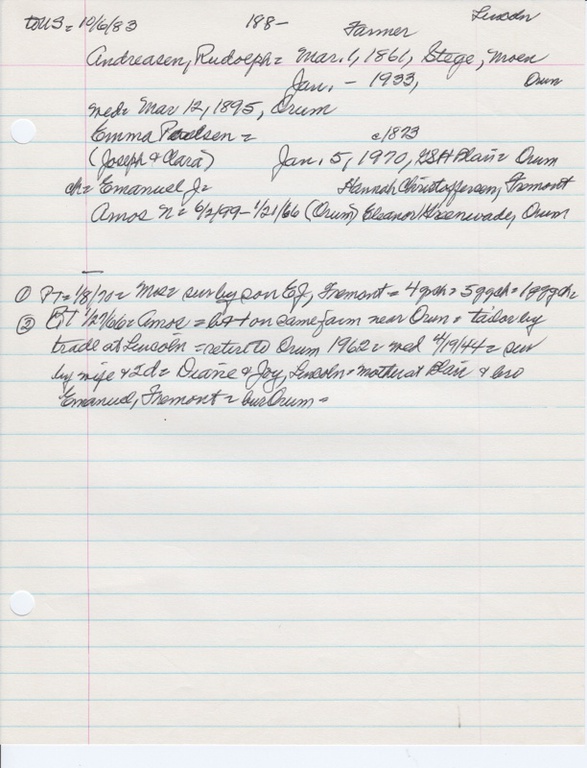 to US = 10/6/83 188- Farmer Lincoln
Andreasen, Rudolph = Mar. 1, 1861, Stege, Moen
Jan. - 1933, Orum
med = Mar 12, 1895, Orum
Emma Poulsen = c1873
(Joseph & Clara) Jan. 5, 1970, Blair = Orum
ch = Emanuel J = Hannah Christoffersen, Fremont
Amos N = 6/2/99 - 1/21/66 (Orum) Eleanor Greenwade, Orum
① PT = 1/8/70 = Mrs = sur by son EJ, Fremont = 4 gch = 5 ggch = 1 gggch =
② 1/27/66 = Amos = b & f on same farm near Orum = tailor by
trade at Lincoln = return to Orum 1962 = med 4/19/44 = sur
by wife & 2d = Diane & Joy, Lincoln = mother at Blair & bro
Emanuel, Fremont = bur Orum =